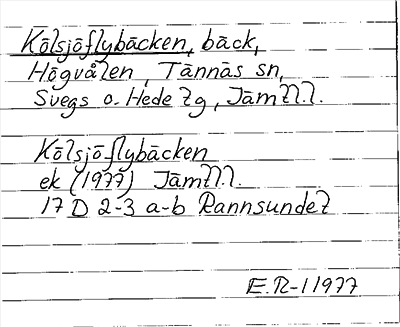 Kölsjöflybäcken, bäck,
Högvålen, Tännäs sn,
Svegs o. Hede tg, Jämtl.l.
Kölsjöflybäcken
ek (1977) Jämtl.l.
17 D 2-3 a-b Rannsundet
E.R-l 1977